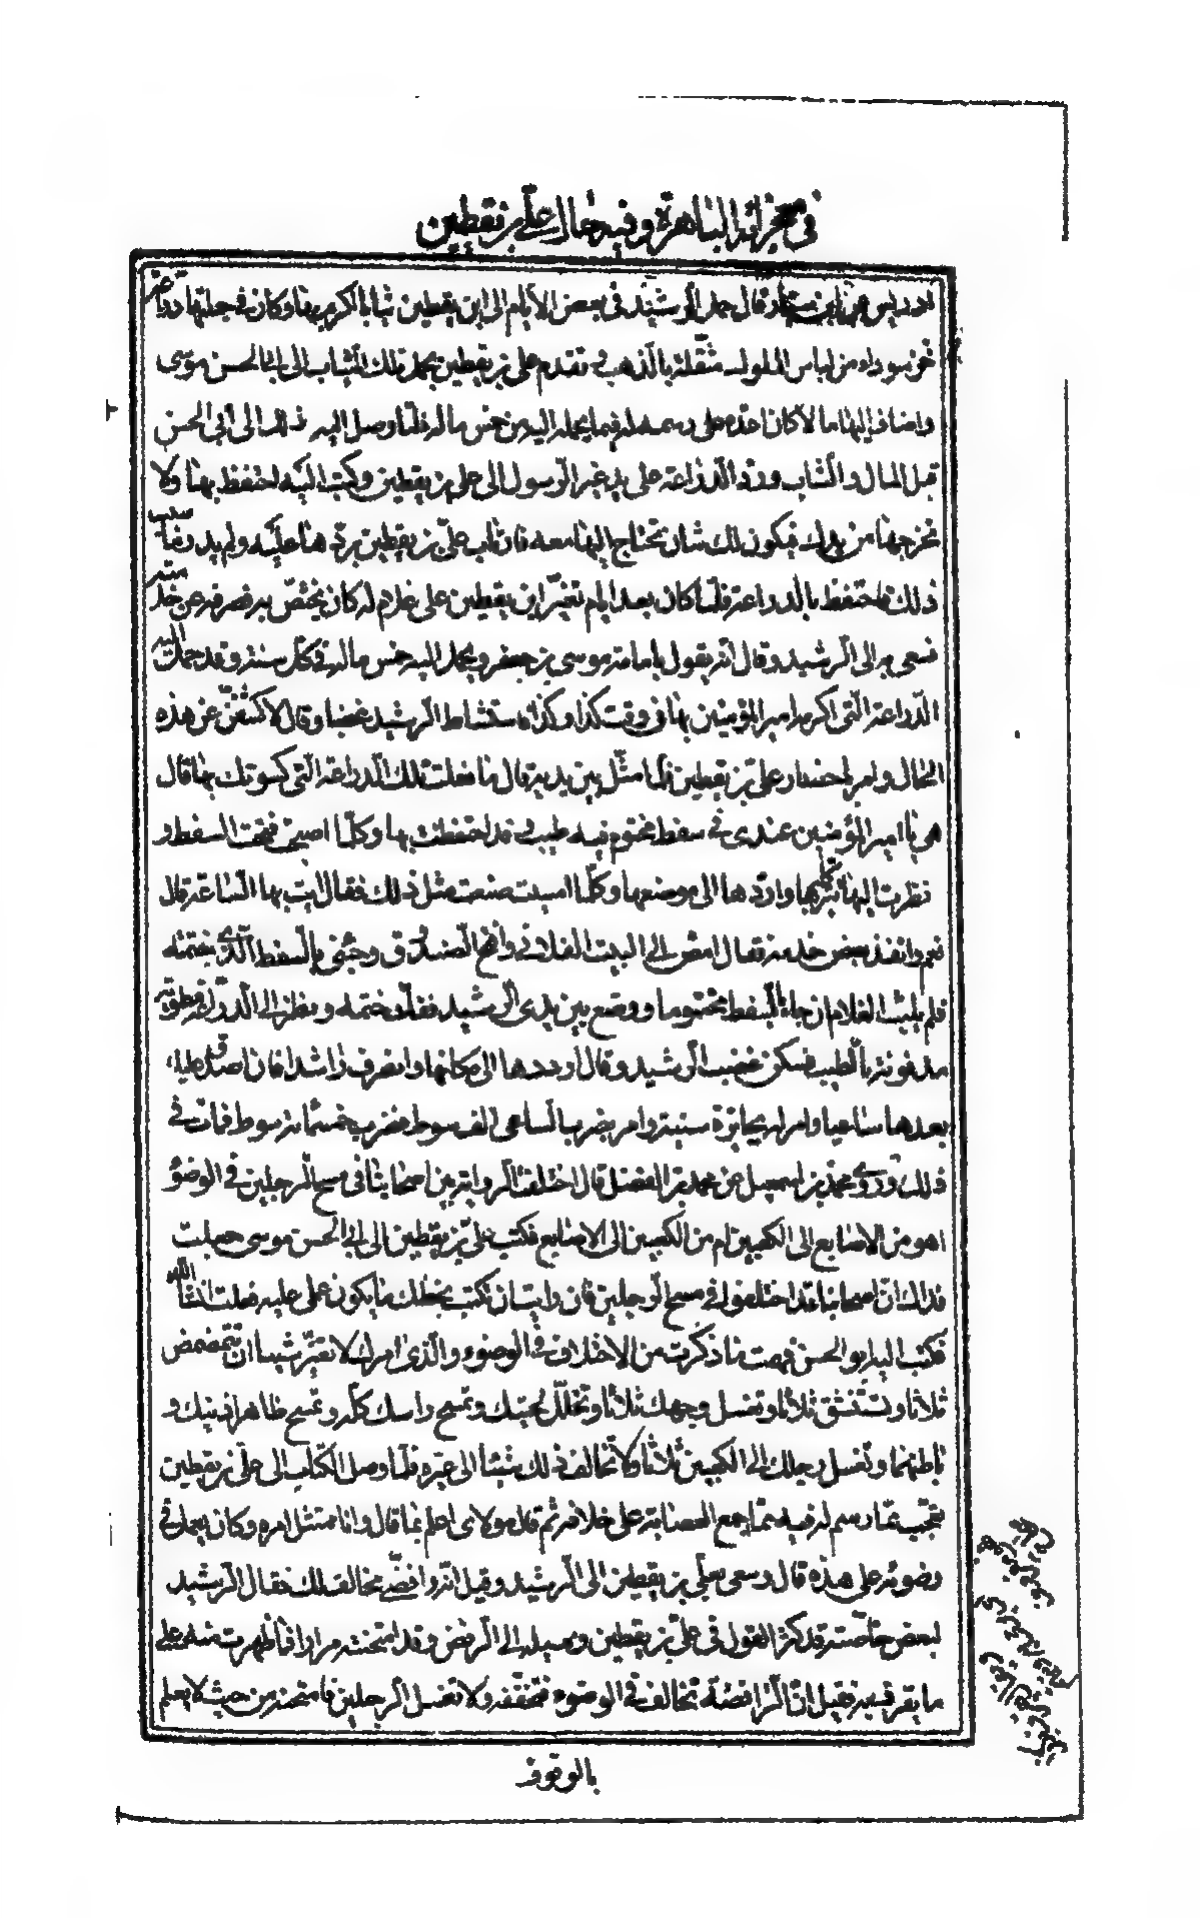 في معجزاته الباهرة وفيه حال علي بن يقطين
ادريس عن ابن سنان قال حمل الرشيد في بعض الايام الى ابن يقطين ثيابا اكرمه بها وكان في جملتها دراعة
خز سوداء من لباس الملوك مثقلة بالذهب فتقدم علي بن يقطين بحمل تلك الثياب الى ابي الحسن موسى
واضاف اليها مالا كان اعده على رسم له فيما يحمله اليه من خمس ماله فلما وصل اليه ذلك الى ابي الحسن
قبل المال والثياب ورد الدراعة على يد غير الرسول الى علي بن يقطين وكتب اليه احتفظ بها ولا
تخرجها من يدك فيكون لك شان تحتاج اليها معه فارتاب علي بن يقطين بردها عليه ولم يدر ما سبب
ذلك فاحتفظ بالدراعة فلما كان بعد ايام تغير ابن يقطين على غلام له كان يختص به فصرفه عن خدمته
فسعى به الى الرشيد وقال انه يقول بامامة موسى بن جعفر ويحمل اليه خمس ماله في كل سنة وقد حمل اليه
الدراعة التي اكرمه امير المؤمنين بها في وقت كذا وكذا فاستشاط الرشيد غضبا وقال لاكشفن عن هذه
الحال وامر باحضار علي بن يقطين فلما مثل بين يديه قال ما فعلت تلك الدراعة التي كسوتك بها قال
هي يا امير المؤمنين عندي في سفط مختوم فيه طيب وقد احتفظت بها وكلما اصبحت فتحت السفط و
نظرت اليها تبركا بها واردها الى موضعها وكلما امسيت صنعت مثل ذلك فقال ايت بها الساعة قال
نعم وانفذ بعض خدمه فقال امض الى البيت الفلاني وافتح الصندوق وجئني بالسفط الذي بختمه
فلم يلبث الغلام ان جاء بالسفط مختوما ووضع بين يدي الرشيد ففك ختمه ونظر الى الدراعة مطوية
مدفونة بالطيب فسكن غضب الرشيد وقال ارددها الى مكانها وانصرف راشدا فلن اصدق عليك
بعدها ساعيا وامر له بجائزة سنية وامر بضرب الساعي الف سوط فضرب خمسمائة سوط فمات في
ذلك وروى محمد بن اسمعيل عن محمد بن الفضل قال اختلفت الرواية بين اصحابنا في مسح الرجلين في الوضوء
اهو من الاصابع الى الكعبين ام من الكعبين الى الاصابع فكتب علي بن يقطين الى ابي الحسن موسى جعلت
فداك ان اصحابنا قد اختلفوا في مسح الرجلين فان رايت ان تكتب بخطك ما يكون عملي عليه فعلت انشاء الله
فكتب اليه ابو الحسن فهمت ما ذكرت من الاختلاف في الوضوء والذي امرك لا تغير شيئا ان تتمضمض
ثلاثا وتستنشق ثلاثا وتغسل وجهك ثلاثا وتخلل لحيتك وتمسح راسك كله وتمسح ظاهر اذنيك و
باطنهما وتغسل رجلك الى الكعبين ثلاثا ولا تخالف ذلك شيئا الى غيره فلما وصل الكتاب الى علي بن يقطين
تعجب مما رسم له فيه مما اجمع العصابة على خلافه ثم قال مولاي اعلم بما قال وانا ممتثل امره وكان يعمل في
وضوئه على هذه قال وسعى بعلي بن يقطين الى الرشيد وقيل انه رافضي مخالف لك فقال الرشيد
لبعض خاصته قد كثر القول في علي بن يقطين وميله الى الرفض وقد امتحنته مرارا فما ظهرت منه على
ما يقرف به فقيل ان الرافضة تخالف في الوضوء فتخففه ولا تغسل الرجلين فامتحنه من حيث لا يعلم
بالوقوف